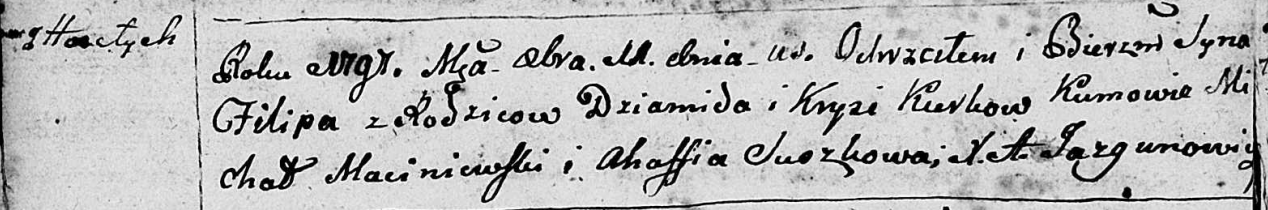 z Hactych
Roku 1791. Mca 8bra. dnia Ochrzcilem i Bierzm Syna
Filipa z Rodzicow Dziamida i Kryzi Kurkow Kumowie Mi
chał Maciniewski i Ahaffia Suszkowa; X. A. Jazgunowicz